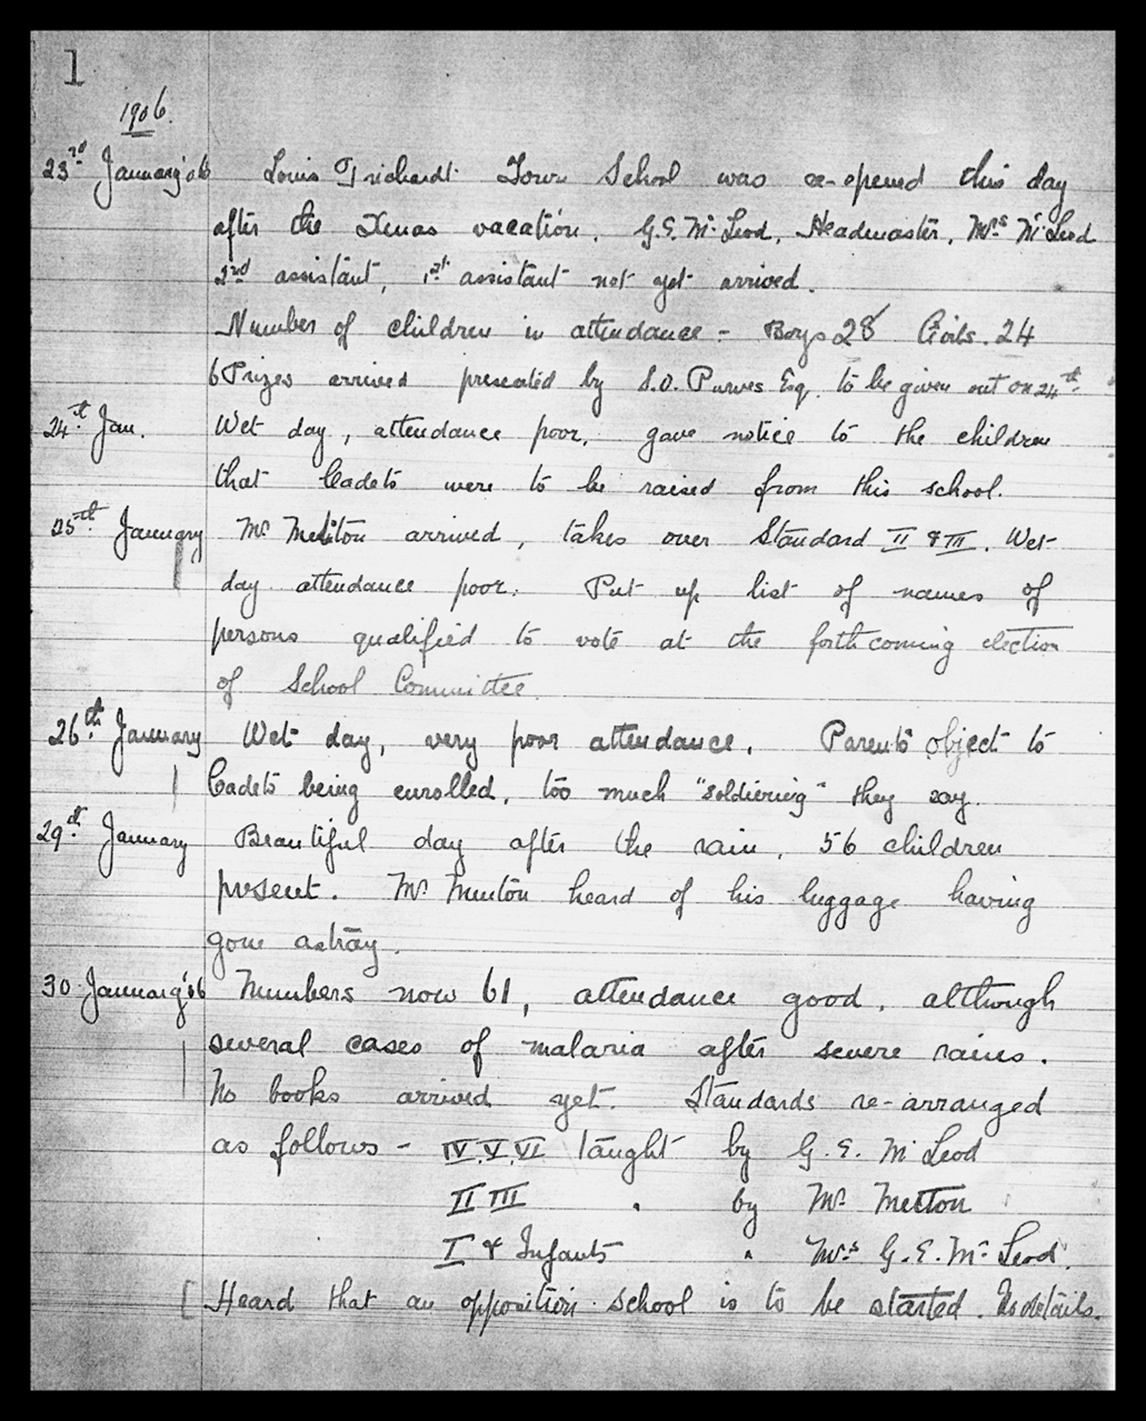 1
1906.
23rd January '06 Louis Trichardt Town School was re-opened this day
after the Xmas vacation. G.E. McLeod, Headmaster, Mrs McLeod
2nd assistant, 1st assistant not yet arrived.
Number of children in attendance - Boys 28 Girls. 24
6 Prizes arrived presented by S.O. Purves Esq. to be given out on 24th.
24th Jan. Wet day, attendance poor, gave notice to the children
that Cadets were to be raised from this school.
25th January Mr arrived, takes over Standard II & III. Wet
day attendance poor. Put up list of names of
persons qualified to vote at the forthcoming election
of School Committee.
26th January Wet day, very poor attendance. Parents object to
Cadets being enrolled, too much "soldiering" they say.
29th January Beautiful day after the rain, 56 children
present. Mr heard of his luggage having
gone astray.
30 January '06 Numbers now 61, attendance good, although
several cases of malaria after severe rains.
No books arrived yet. Standards re-arranged
as follows - IV. V. VI taught by G. E. McLeod
II III " by Mr
I & Infants " Mrs G. E. McLeod.
[ Heard that an opposition school is to be started. No details.